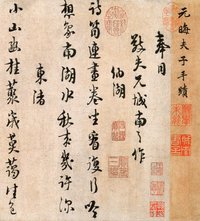 元晦夫子手蹟
奉同
敬夫兄城南之作
納湖
詩筒連畫卷坐看復行吟
想像南湖水秋來幾許深
東渚
小山幽桂叢歲莫藹佳色